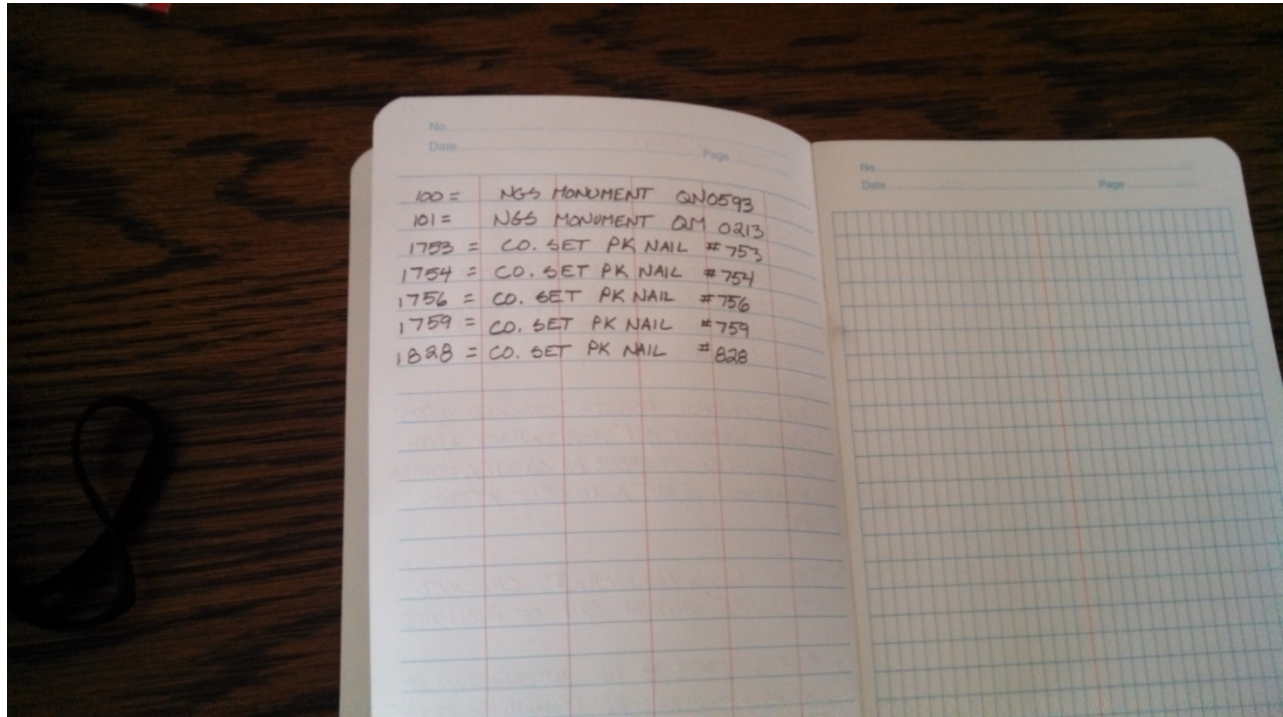 No.
Date
Page
100 = NGS MONUMENT QN0593
101 = NGS MONUMENT QM 0213
1753 = CO. SET PK NAIL #753
1754 = CO. SET PK NAIL #754
1756 = CO. SET PK NAIL #756
1759 = CO. SET PK NAIL #759
1828 = CO. SET PK NAIL #828
No.
Date
Page